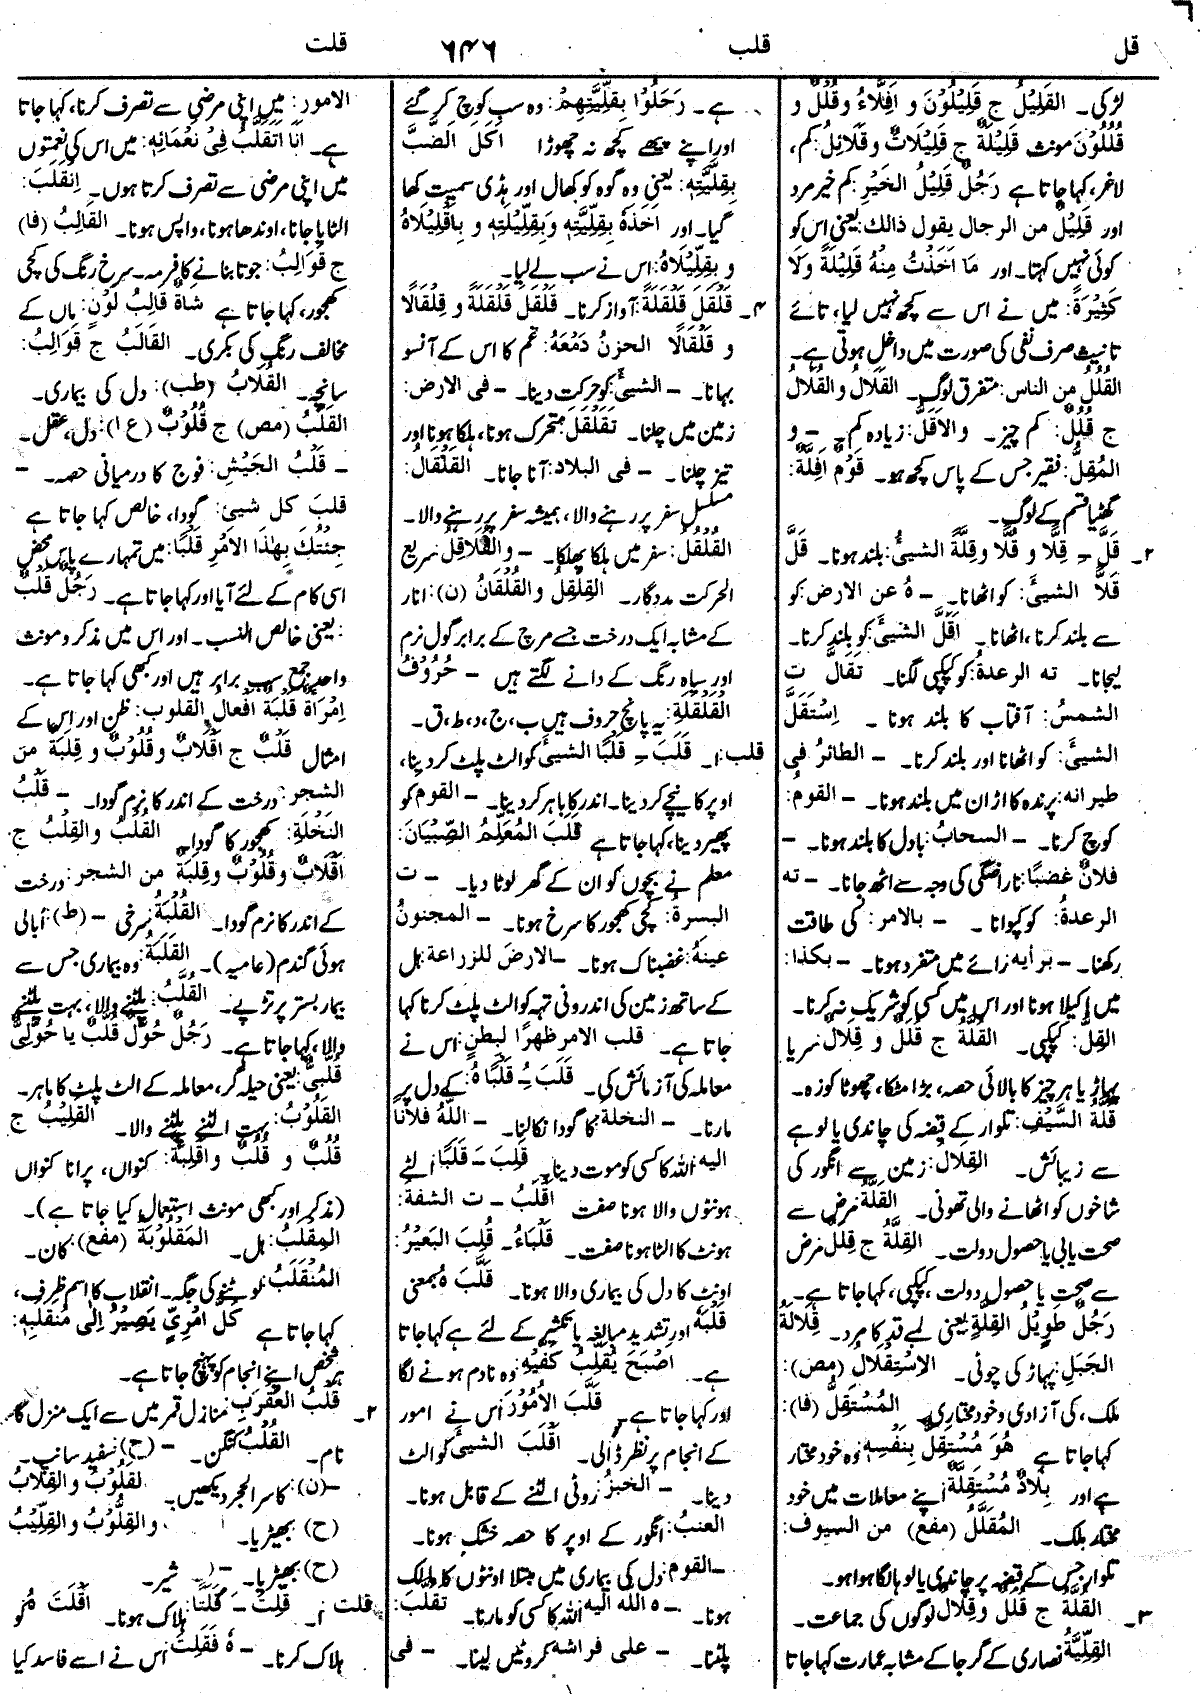 قل
قلب
٦٤٦
قلت
لڑکی۔ القَلِيْلُ ج قَلِيْلُوْنَ و اَقِلَّاءُ وقُلُلٌ و
قُلُلُوْنَ مونث قَلِيْلَةٌ ج قَلِيْلَاتٌ وقَلَائِلُ: کم،
لاغر، کہا جاتا ہے رَجُلٌ قَلِيْلُ الخَيْرِ: کم خیر مرد
اور قَلِيْلٌ من الرجال يقول ذالك: یعنی اس کو
کوئی نہیں کہتا۔ اور مَا اَخَذْتُ مِنْهُ قَلِيْلَةً وَلَا
كَثِيْرَةً: میں نے اس سے کچھ نہیں لیا، تائے
تانیث صرف نفی کی صورت میں داخل ہوتی ہے۔
القُلُلُ من الناس: متفرق لوگ۔ القَلَالُ والقُلَالُ
ج قُلُلٌ: کم چیز۔ والاَقَلُّ: زیادہ کم۔ – و
المُقِلُّ: فقیر جس کے پاس کچھ ہو۔ قَوْمٌ اَقِلَّةٌ:
گھٹیا قسم کے لوگ۔
۲۔ قَلَّ – قِلًّا و قُلًّا وقِلَّةً الشيئُ: بلند ہونا۔ قَلَّ
قَلًّا الشيئَ: کو اٹھانا۔ – هُ عن الارض: کو
سے بلند کرنا، اٹھانا۔ اَقَلَّ الشيئَ: کو بلند کرنا۔
لیجانا۔ – ته الرعدةُ: کو کپکپی لگنا۔ تَقَالَّ ت
الشمسُ: آفتاب کا بلند ہونا۔ اِسْتَقَلَّ
الشيئَ: کو اٹھانا اور بلند کرنا۔ – الطائرُ فى
طيرانه: پرندہ کا اڑان میں بلند ہونا۔ – القومُ:
کوچ کرنا۔ – السحابُ: بادل کا بلند ہونا۔ –
فلانٌ غضبًا: ناراضگی کی وجہ سے اٹھ جانا۔ – ته
الرعدةُ: کو کپوانا۔ – بالامر: کی طاقت
رکھنا۔ – برأيه: رائے میں متفرد ہونا۔ – بكذا:
میں اکیلا ہونا اور اس میں کسی کو شریک نہ کرنا۔
القِلُّ: کپکپی۔ القُلَّةُ ج قُلَلٌ و قِلَالٌ: سر یا
پہاڑ یا ہر چیز کا بالائی حصہ، بڑا مٹکا، چھوٹا کوزہ۔
قُلَّةُ السَّيْفِ: تلوار کے قبضہ کی چاندی یا لوہے
سے زیبائش۔ القِلَالُ: زمین سے انگور کی
شاخوں کو اٹھانے والی تھونی۔ القَلَّةُ: مرض سے
صحت یابی یا حصول دولت۔ القِلَّةُ ج قِلَلٌ: مرض
سے صحت یا حصول دولت، کپکپی، کہا جاتا ہے۔
رَجُلٌ طَوِيْلُ القِلَّةِ: یعنی لمبے قد کا مرد۔ قِلَالَةُ
الجَبَلِ: پہاڑ کی چوٹی۔ الاِسْتِقْلَالُ (مص):
ملک، کی آزادی و خود مختاری۔ المُسْتَقِلُّ (فا):
کہا جاتا ہے هُوَ مُسْتَقِلٌّ بِنَفْسِهٖ: وہ خود مختار
ہے اور بِلَادٌ مُسْتَقِلَّةٌ: اپنے معاملات میں خود
مختار ملک۔ المُقَلَّلُ (مفع) من السيوف:
تلوار جس کے قبضہ پر چاندی یا لوہا لگا ہوا ہو۔
۳۔ القُلَّةُ ج قُلَلٌ وقِلَالٌ: لوگوں کی جماعت۔
القِلِّيَّةُ: نصاری کے گرجا کے مشابہ عمارت کہا جاتا
ہے۔ رَحَلُوْا بِقِلِّيَّتِهِمْ: وہ سب کوچ کر گئے
اور اپنے پیچھے کچھ نہ چھوڑا اَكَلَ الضَّبَّ
بِقِلِّيَّتِهٖ: یعنی وہ گوہ کو کھال اور ہڈی سمیت کھا
گیا۔ اور اَخَذَهٗ بِقِلِّيَّتِهٖ وَبِقِلِّيْلَتِهٖ و بِاَقْلِيْلَاهُ
و بِقِلِّيْلَاهُ: اس نے سب لے لیا۔
۴۔ قَلْقَلَ قَلْقَلَةً: آواز کرنا۔ قَلْقَلَ قَلْقَلَةً و قِلْقَالًا
و قَلْقَالًا الحزنُ دَمْعَهُ: غم کا اس کے آنسو
بہانا۔ – الشيئَ: کو حرکت دینا۔ – فى الارض:
زمین میں چلنا۔ تَقَلْقَلَ: متحرک ہونا، ہلکا ہونا اور
تیز چلنا۔ – فى البلاد: آنا جانا۔ القَلْقَالُ:
مسلسل سفر پر رہنے والا، ہمیشہ سفر پر رہنے والا۔
القُلْقُلُ: سفر میں ہلکا پھلکا۔ – والقُلَاقِلُ: سریع
الحرکت مددگار۔ القِلْقِلُ والقُلْقَانُ (ن): انار
کے مشابہ ایک درخت جسے مرچ کے برابر گول نرم
اور سیاہ رنگ کے دانے لگتے ہیں – حُرُوْفُ
القَلْقَلَةِ: یہ پانچ حروف ہیں ب، ج، د، ط، ق۔
قلب: ۱۔ قَلَبَ – قَلْبًا الشيئَ: کو الٹ پلٹ کر دینا،
اوپر کا نیچے کر دینا۔ اندر کا باہر کر دینا۔ – القوم: کو
پھیر دینا، کہا جاتا ہے قَلَبَ المُعَلِّمُ الصِّبْيَانَ:
معلم نے بچوں کو ان کے گھر لوٹا دیا۔ – ت
البسرةُ: کچی کھجور کا سرخ ہونا۔ – المجنونُ
عينهُ: غضبناک ہونا۔ – الارضَ للزراعة: ہل
کے ساتھ زمین کی اندرونی تہہ کو الٹ پلٹ کرنا کہا
جاتا ہے۔ قلب الامر ظهرًا لبطنٍ: اس نے
معاملہ کی آزمائش کی۔ قَلَبَ – قَلْبًا هُ: کے دل پر
مارنا۔ – النخلة: کا گودا نکالنا۔ – اللهُ فلانا
اليه: اللہ کا کسی کو موت دینا۔ قَلِبَ – قَلَبًا: الٹے
ہونٹوں والا ہونا صفت اَقْلَبُ – ت الشفة:
ہونٹ کا الٹا ہونا صفت۔ قَلْبَاءُ۔ قُلِبَ البَعِيْرُ:
اونٹ کا دل کی بیماری والا ہونا۔ قَلَّبَ هُ: بمعنی
قَلَبَهٗ اور تشدید مبالغہ یا تکثیر کے لئے ہے کہا جاتا
ہے۔ اَصْبَحَ يُقَلِّبُ كَفَّيْهِ: وہ نادم ہونے لگا
اور کہا جاتا ہے۔ قَلَّبَ الاُمُوْرَ: اس نے امور
کے انجام پر نظر ڈالی۔ اَقْلَبَ الشيئَ: کو الٹ
دینا۔ – الخبزُ: روٹی الٹنے کے قابل ہونا۔
العنبُ: انگور کے اوپر کا حصہ خشک ہونا۔
– القوم: دل کی بیماری میں مبتلا اونٹوں کا مالک
ہونا۔ – ه الله اليه: اللہ کا کسی کو مارنا۔ تَقَلَّبَ:
پلٹنا۔ – على فراشه: کروٹیں لینا۔ – فى
الامورِ: میں اپنی مرضی سے تصرف کرنا، کہا جاتا
ہے۔ اَنَا اَتَقَلَّبُ فِىْ نَعْمَائِهٖ: میں اس کی نعمتوں
میں اپنی مرضی سے تصرف کرتا ہوں۔ اِنْقَلَبَ:
الٹایا جانا، اوندھا ہونا، واپس ہونا۔ القَالِبُ (فا)
ج قَوَالِبُ: جوتا بنانے کا فرمہ۔ سرخ رنگ کی کچی
کھجور، کہا جاتا ہے شاةٌ قالِبُ لَوْنٍ: ماں کے
مخالف رنگ کی بکری۔ القَالَبُ ج قَوَالِبُ:
سانچہ۔ القُلَابُ (طب): دل کی بیماری۔
القَلْبُ (مص) ج قُلُوْبٌ (ع ا): دل، عقل۔
– قَلْبُ الجَيْشِ: فوج کا درمیانی حصہ۔ –
قلبَ كل شيئ: گودا، خالص کہا جاتا ہے
جِئْتُكَ بِهٰذَا الاَمْرِ قَلْبًا: میں تمہارے پاس محض
اسی کام کے لئے آیا اور کہا جاتا ہے۔ رَجُلٌ قَلْبٌ
: یعنی خالص النسب۔ اور اس میں مذکر و مونث
واحد جمع سب برابر ہیں اور کبھی کہا جاتا ہے۔
اِمْرَاَةٌ قَلْبَةٌ افعال القلوب: ظن اور اس کے
امثال قَلْبٌ ج اَقْلَابٌ وقُلُوْبٌ و قِلَبَةٌ من
الشجر: درخت کے اندر کا نرم گودا۔ – قَلْبُ
النَخْلَةِ: کھجور کا گودا۔ القُلْبُ والقِلْبُ ج
اَقْلَابٌ وقُلُوْبٌ وقِلَبَةٌ من الشجر: درخت
کے اندر کا نرم گودا۔ القُلْبَةُ: سرخی – (ط) ابالی
ہوئی گندم (عامیہ)۔ القَلَبَةُ: وہ بیماری جس سے
بیمار بستر پر تڑپے۔ القُلَّبُ: پلٹنے والا، بہت پلٹنے
والا، کہا جاتا ہے۔ رَجُلٌ حُوَّلٌ قُلَّبٌ یا حُوَّلِىٌّ
قُلَّبِىٌّ: یعنی حیلہ گر، معاملہ کے الٹ پلٹ کا ماہر۔
القَلُوْبُ: بہت الٹنے پلٹنے والا۔ القَلِيْبُ ج
قُلُبٌ و قُلْبٌ واَقْلِبَةٌ: کنواں، پرانا کنواں
(مذکر اور کبھی مونث استعمال کیا جاتا ہے)۔
المِقْلَبُ: ہل۔ المَقْلُوْبَةُ (مفع): کان۔
المُنْقَلَبُ: لوٹنے کی جگہ۔ انقلاب کا اسم ظرف،
کہا جاتا ہے كُلُّ امْرِىٍٔ يَصِيْرُ اِلٰى مُنْقَلَبِهٖ:
ہر شخص اپنے انجام کو پہنچ جاتا ہے۔
۲۔ قَلْبُ العَقْرَبِ: منازل قمر میں سے ایک منزل کا
نام۔ القُلْبُ: کنگن۔ – (ح) سفید سانپ۔
– (ن): کاسر الحجر دیکھیں۔ لقلُوْبُ والقِلَابُ
(ح) بھیڑیا۔ والقِلَّوْبُ والقِلِّيْبُ
(ح) بھیڑیا۔ – شیر۔
قلت ۱۔ قَلِتَ – قَلَتًا: ہلاک ہونا۔ اَقْلَتَ هُ: کو
ہلاک کرنا۔ – هٗ فَقَلِتَ: اس نے اسے فاسد کیا